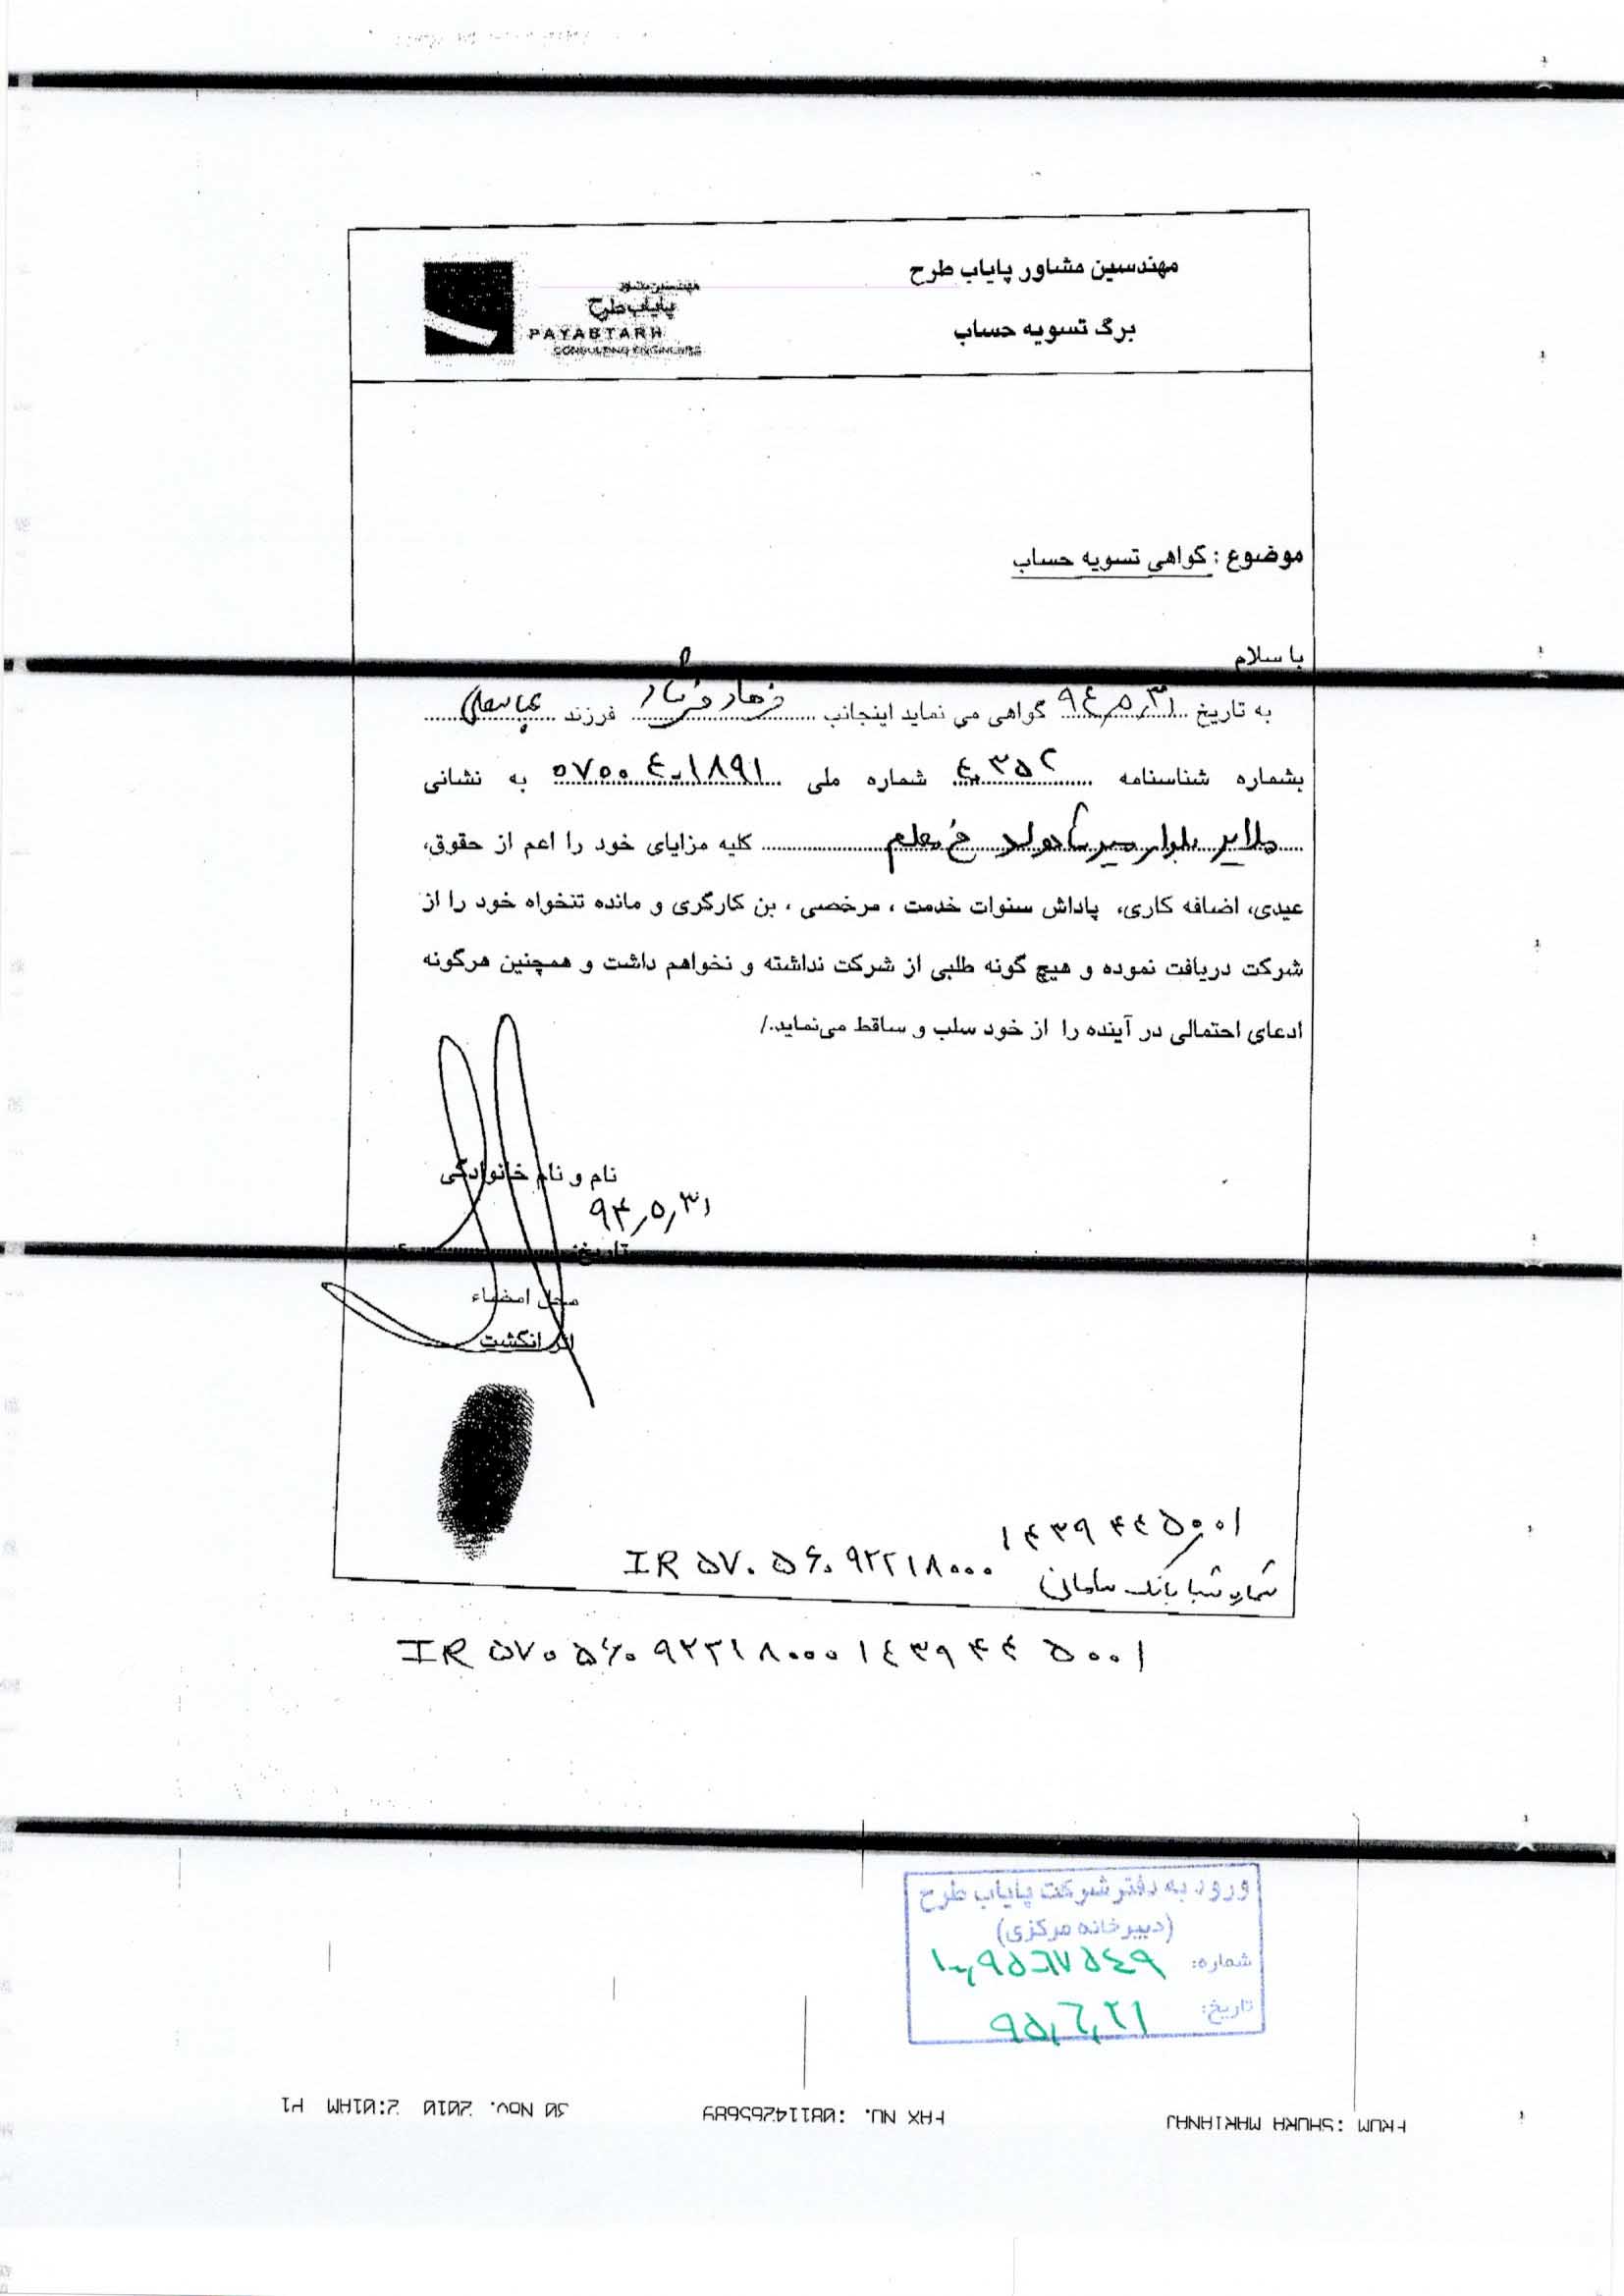 مهندسین مشاور پایاب طرح
برگ تسویه حساب
مهندسین مشاور
پایاب طرح
PAYABTARH
CONSULTING ENGINEERS
موضوع : گواهی تسویه حساب
با سلام
به تاریخ ۹٤٫۵٫۳۱ گواهی می نماید اینجانب فرهاد فرزند عباسعلی
بشماره شناسنامه ٤۰۳۵۲ شماره ملی ۰۷۰۰٤۰۱۸۹۱ به نشانی
ملایر بلوار خ معلم کلیه مزایای خود را اعم از حقوق،
عیدی، اضافه کاری، پاداش سنوات خدمت ، مرخصی ، بن کارگری و مانده تنخواه خود را از
شرکت دریافت نموده و هیچ گونه طلبی از شرکت نداشته و نخواهم داشت و همچنین هرگونه
ادعای احتمالی در آینده را از خود سلب و ساقط می‌نماید./
نام و نام خانوادگی
۹۴٫۵٫۳۱
تاریخ:
محل امضاء
اثر انگشت
۱۴۳۹۴۴۵۰۰۱
شماره شبا بانک سامان IR ۵۷۰۵۶۰۹۲۲۱۸۰۰۰
IR ۵۷۰۵۶۰۹۲۲۱۸۰۰۰۱٤۳۹۴۴۵۰۰۱
ورود به دفتر شرکت پایاب طرح
(دبیرخانه مرکزی)
شماره:
تاریخ: ۹۵٫٦٫۲۱
FROM :SHOKA MARIANAJ FAX NO. :08114265689 30 NOV. 2010 2:01AM P1